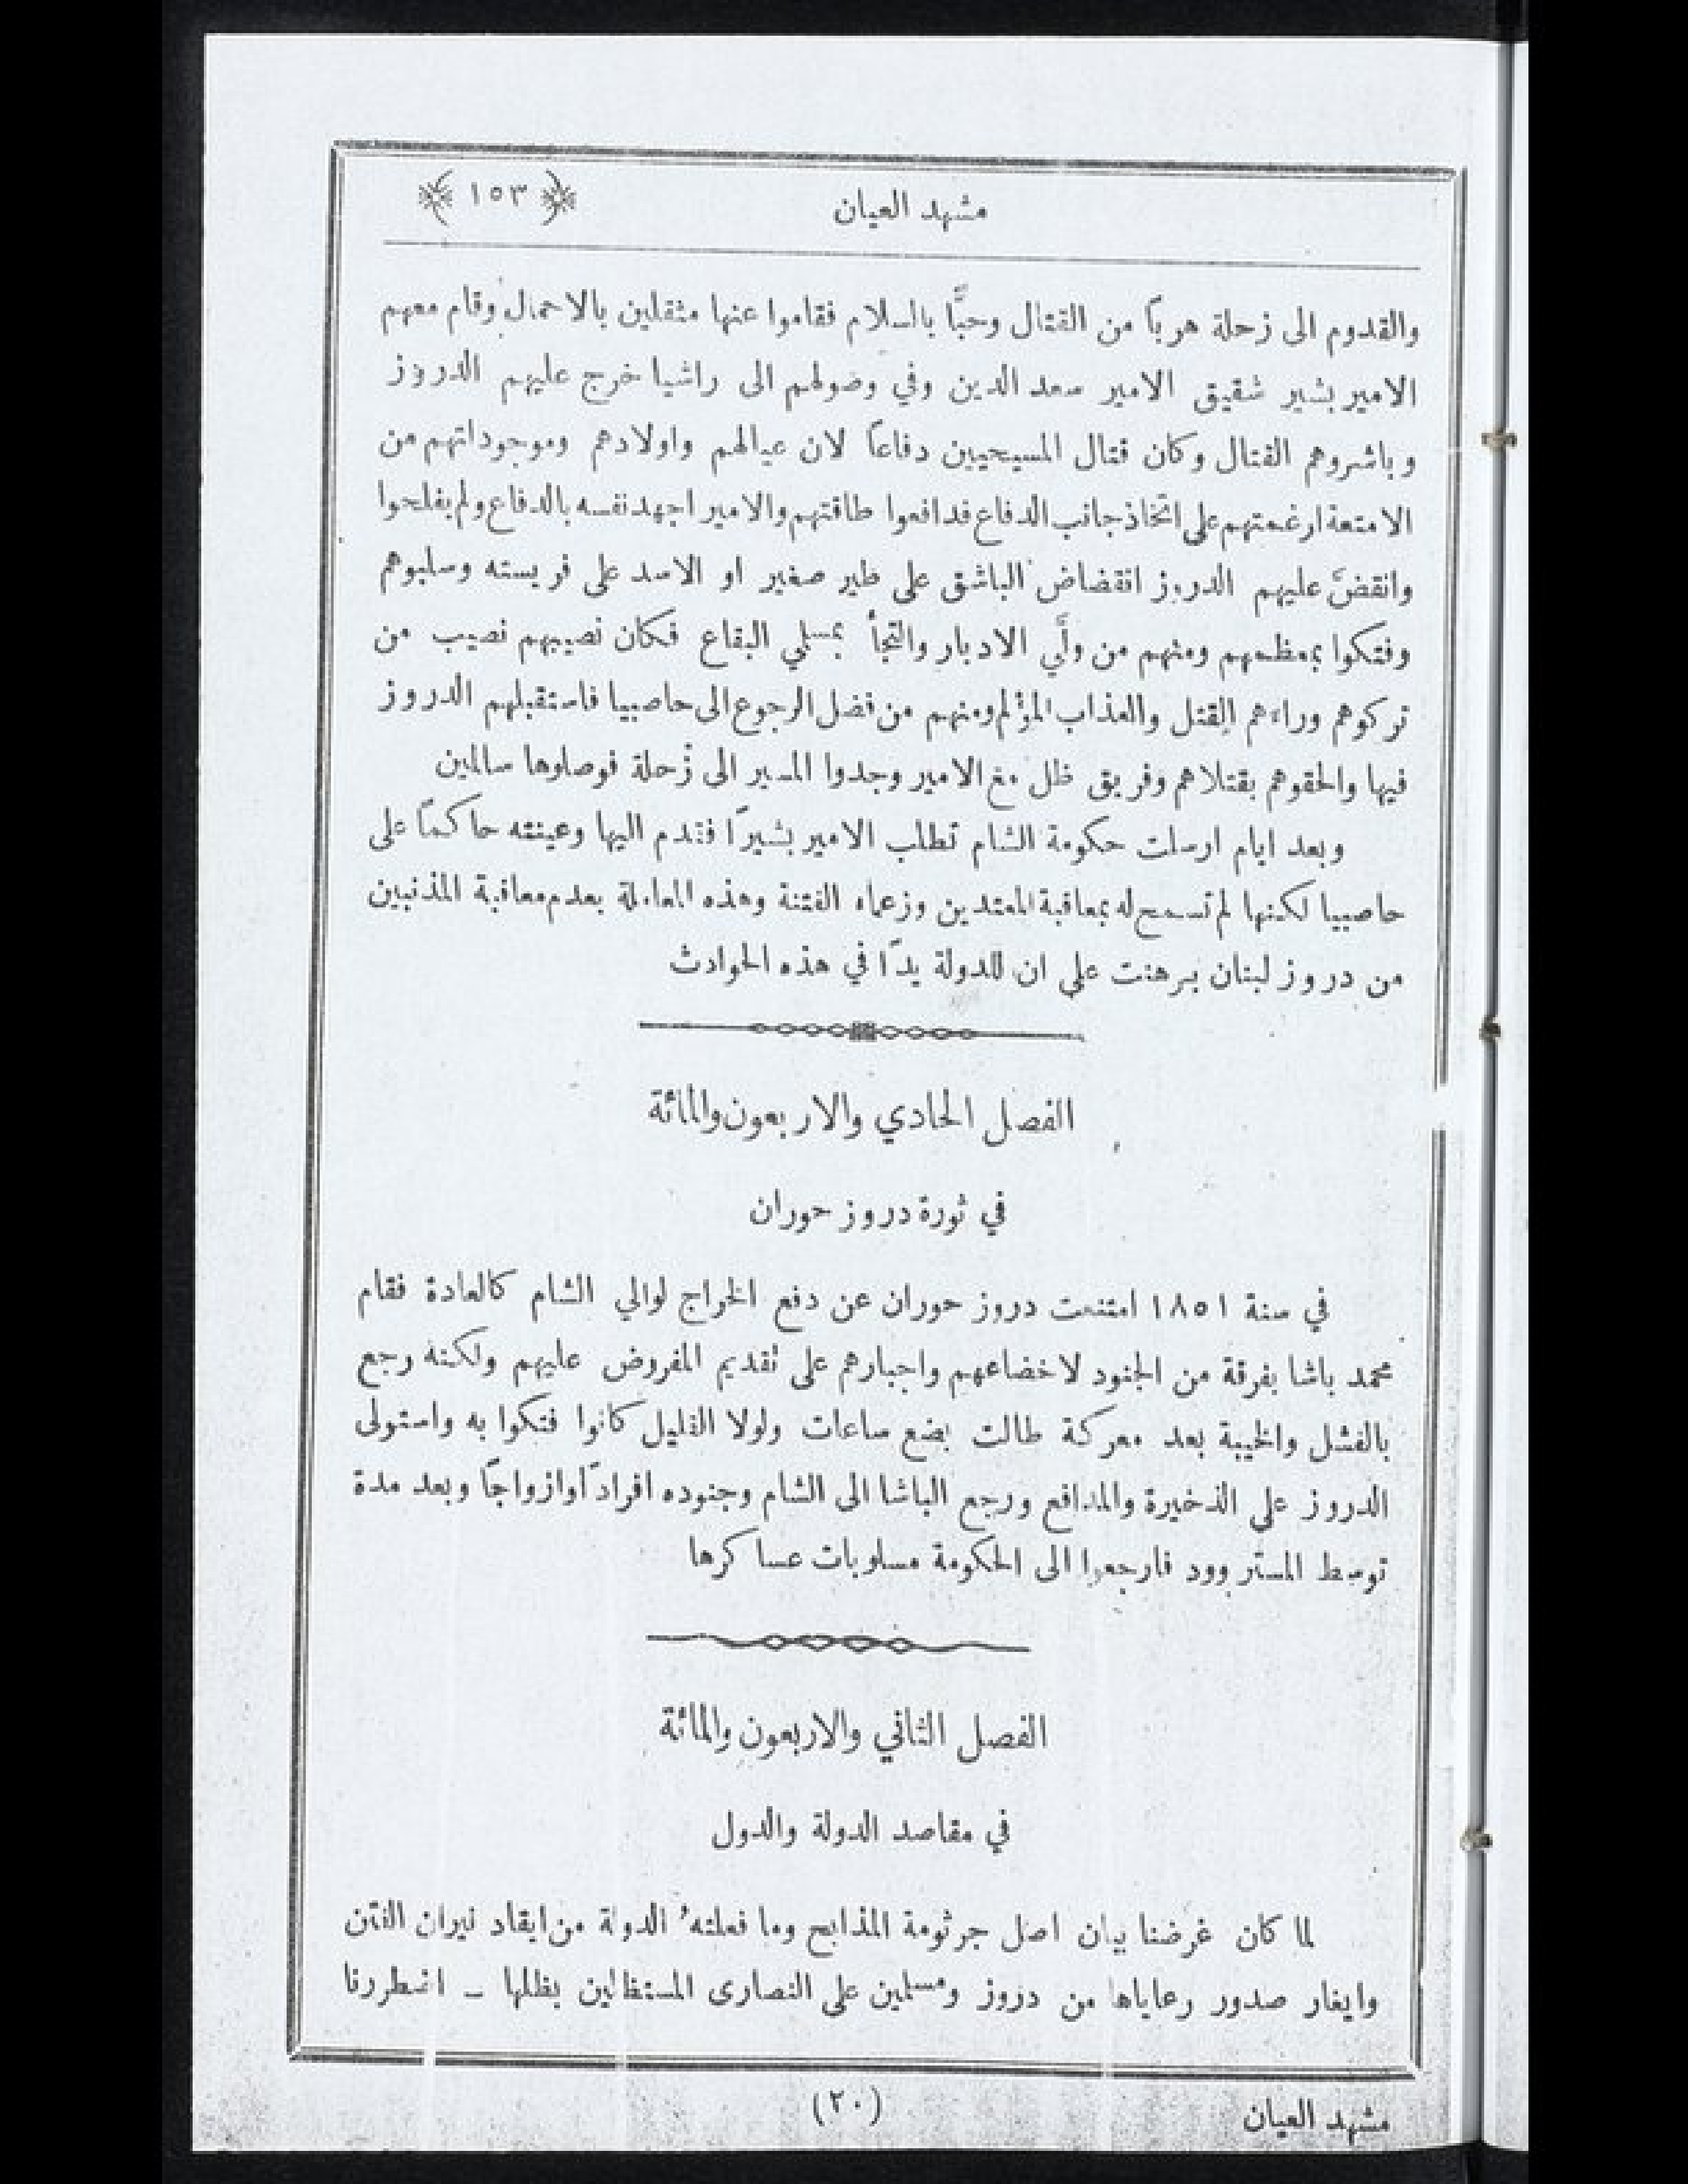 مشهد العيان ﴿ ١٥٣ ﴾
والقدوم الى زحلة هرباً من القتال وحبًّا بالسلام فقاموا عنها مثقلين بالاحمال وقام معهم
الامير بشير شقيق الامير سعد الدين وفي وصولهم الى راشيا خرج عليهم الدروز
وباشروهم القتال وكان قتال المسيحيين دفاعاً لان عيالهم واولادهم وموجوداتهم من
الامتعة ارغمتهم على اتخاذ جانب الدفاع فدافعوا طاقتهم والامير اجهد نفسه بالدفاع ولم يفلحوا
وانقضَّ عليهم الدروز انقضاض الباشق على طير صغير او الاسد على فريسته وسلبوهم
وفتكوا بمعظمهم ومنهم من ولَّى الادبار والتجأ بمسلمي البقاع فكان نصيبهم نصيب من
تركوهم وراءهم القتل والعذاب المؤلم ومنهم من فضل الرجوع الى حاصبيا فاستقبلهم الدروز
فيها والحقوهم بقتلاهم وفريق ظل مع الامير وجدوا المسير الى زحلة فوصلوها سالمين
وبعد ايام ارسلت حكومة الشام تطلب الامير بشيراً فقدم اليها وعينته حاكماً على
حاصبيا لكنها لم تسمح له بمعاقبة المعتدين وزعماء الفتنة وهذه المعاملة بعدم معاقبة المذنبين
من دروز لبنان برهنت على ان للدولة يداً في هذه الحوادث
الفصل الحادي والاربعون والمائة
في ثورة دروز حوران
في سنة ١٨٥١ امتنعت دروز حوران عن دفع الخراج لوالي الشام كالعادة فقام
محمد باشا بفرقة من الجنود لاخضاعهم واجبارهم على تقديم المفروض عليهم ولكنه رجع
بالفشل والخيبة بعد معركة طالت بضع ساعات ولولا القليل كانوا فتكوا به واستولى
الدروز على الذخيرة والمدافع ورجع الباشا الى الشام وجنوده افراداً اوازواجاً وبعد مدة
توسط المستر وود فارجعوا الى الحكومة مسلوبات عساكرها
الفصل الثاني والاربعون والمائة
في مقاصد الدولة والدول
لما كان غرضنا بيان اصل جرثومة المذابح وما فعلتهُ الدولة من ايقاد نيران الفتن
وايغار صدور رعاياها من دروز ومسلمين على النصارى المستظلين بظلها ـ اضطررنا
مشهد العيان (٢٠)